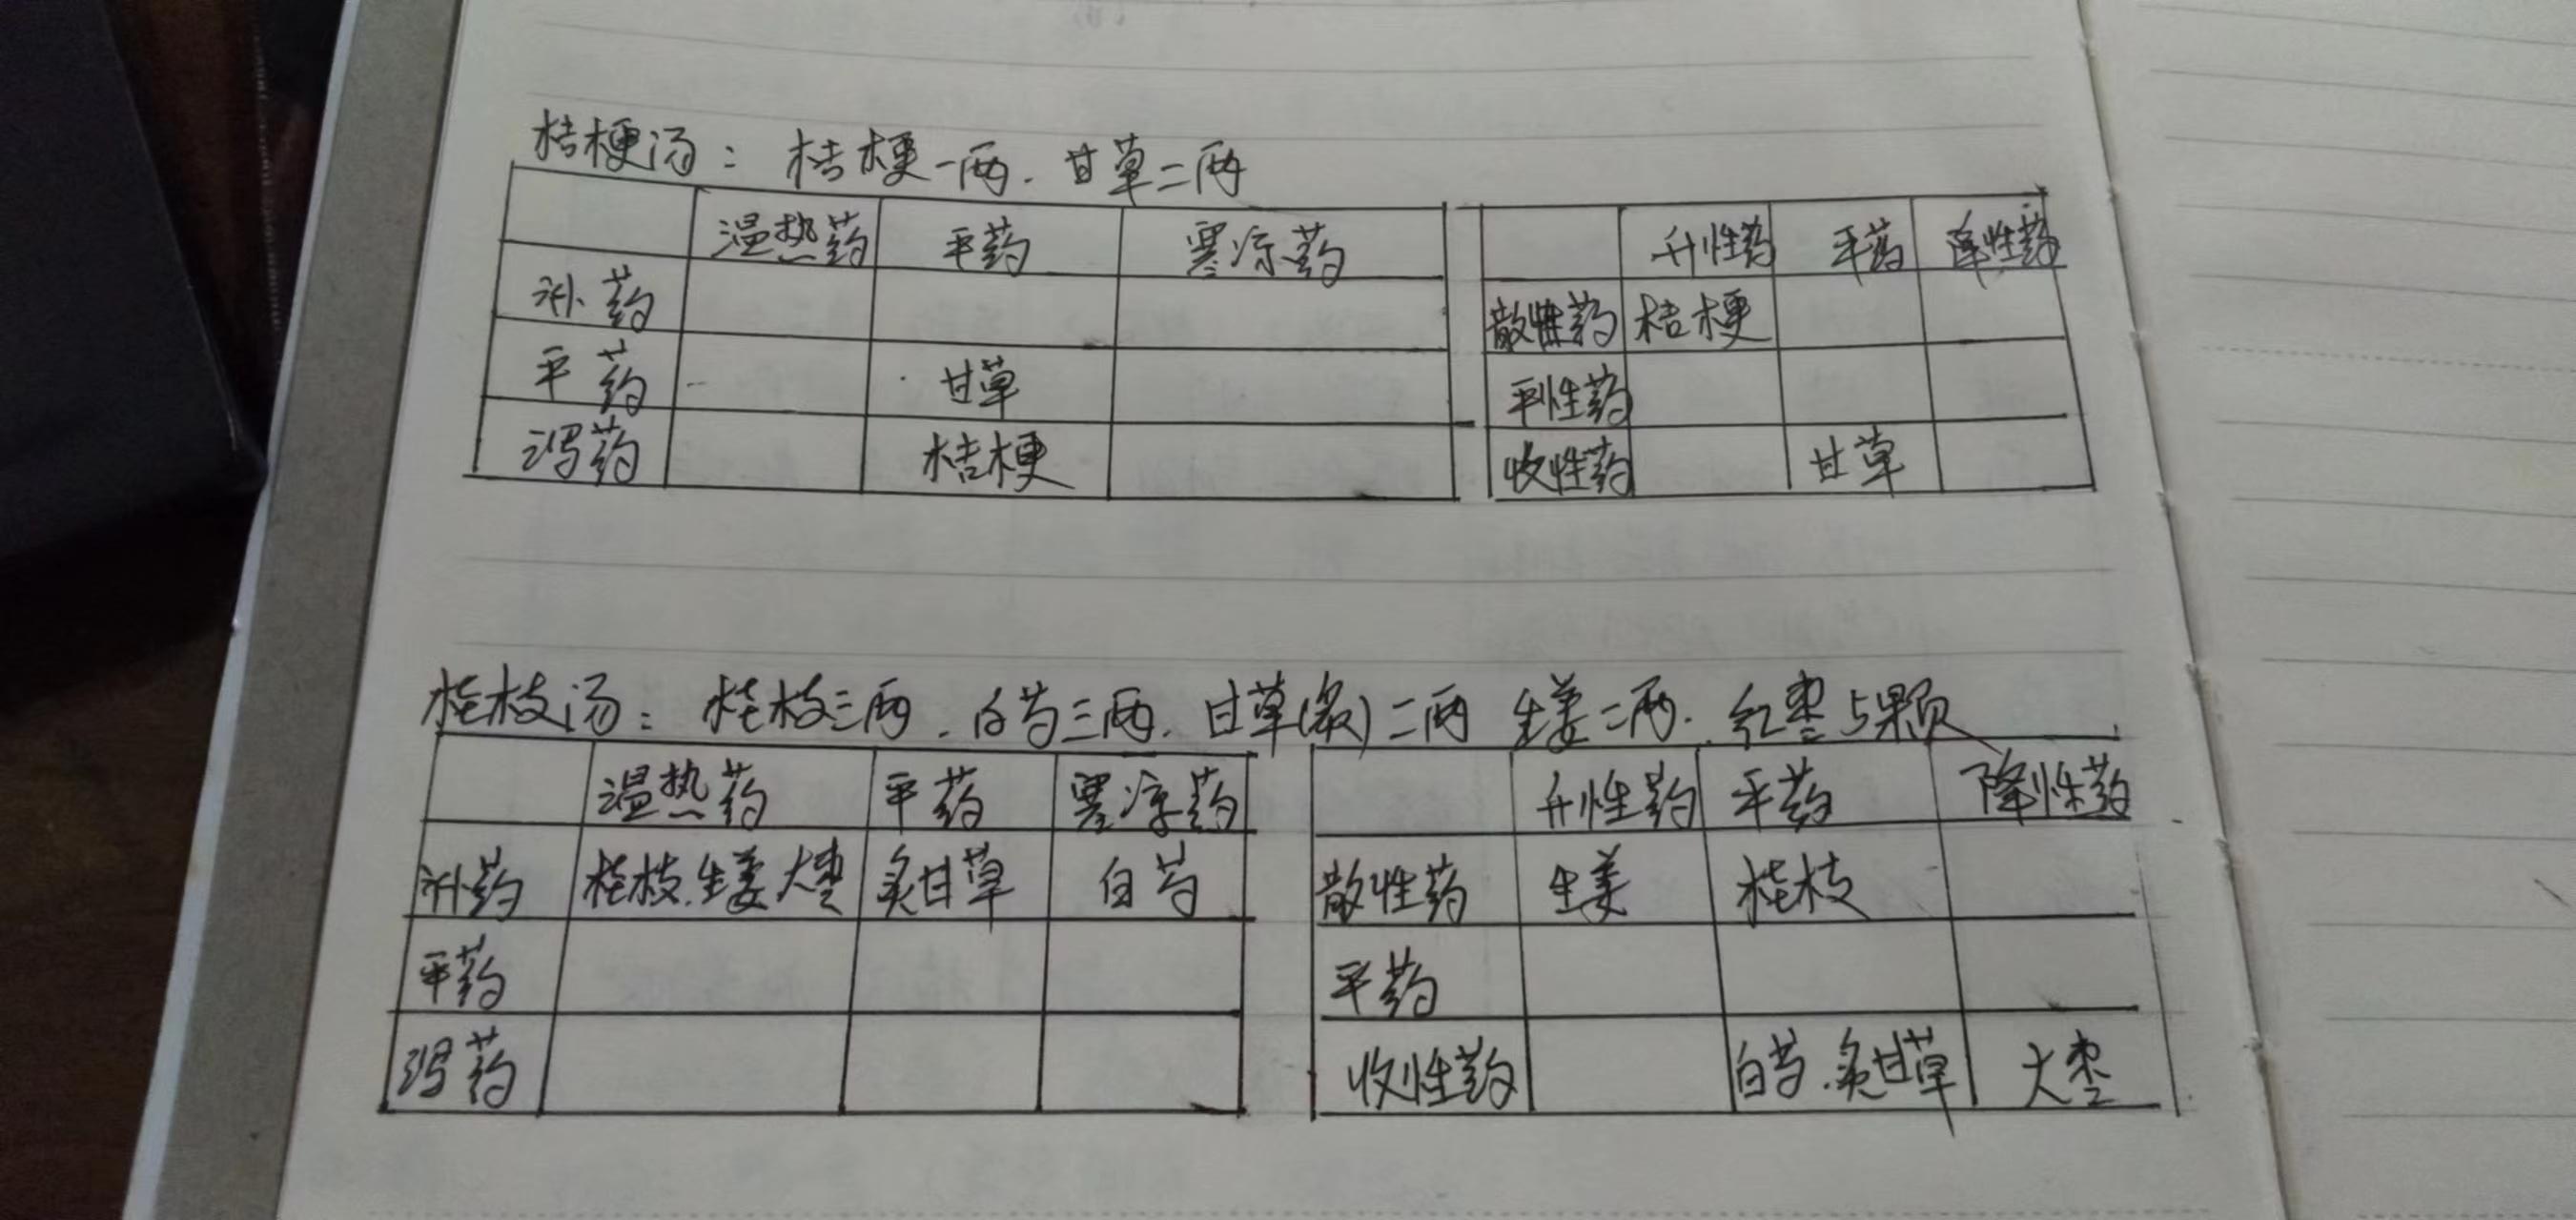 桔梗汤：桔梗一两．甘草二两
温热药 平药 寒凉药
补药
平药 甘草
泻药 桔梗
升性药 平药 降性药
散性药 桔梗
平性药
收性药 甘草
桂枝汤：桂枝三两．白芍三两．甘草(炙)二两 生姜二两．红枣5颗
温热药 平药 寒凉药
补药 桂枝．生姜 大枣 炙甘草 白芍
平药
泻药
升性药 平药 降性药
散性药 生姜 桂枝
平药
收性药 白芍．炙甘草 大枣